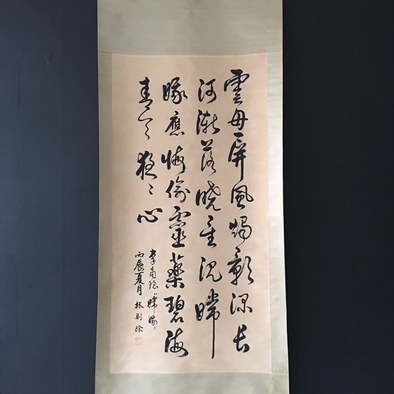 雲母屏風燭影深長
河漸落曉星沉嫦
娥應悔偷靈藥碧海
青天夜〻心
李商隱嫦娥
丙辰夏月林則徐